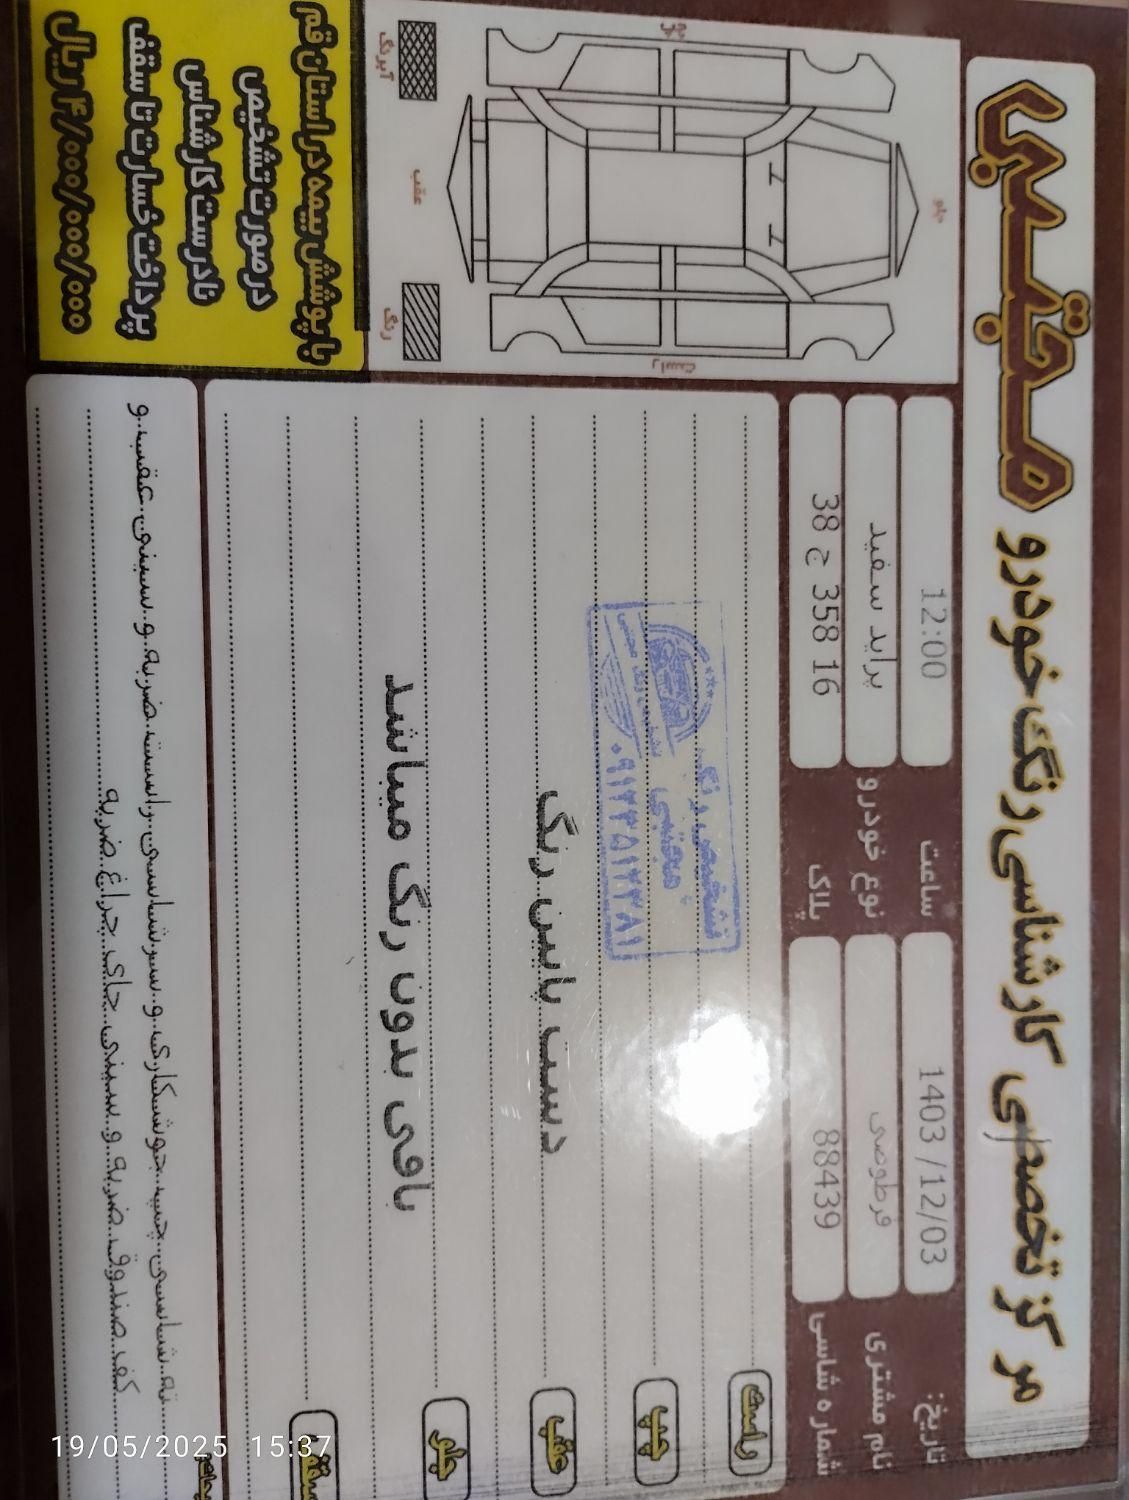 مرکز تخصصی کارشناسی رنگ خودرو مجتبی
تاریخ: 1403/12/03 ساعت 12:00
نام مشتری قرطوصی نوع خودرو پراید سفید
شماره شاسی 88439 پلاک 38 ج 358 16
جلو
چپ
راست
عقب
آبرنگ
رنگ
با پوشش بیمه در استان قم
در صورت تشخیص
نادرست کارشناس
پرداخت خسارت تا سقف
۴/۰۰۰/۰۰۰/۰۰۰ ریال
راست
چپ
تشخیص رنگ
مجتبی
۰۹۱۲۲۵۱۲۲۸۱
عقب دست پایین رنگ
جلو باقی بدون رنگ میباشد
سقف
ته شاسی چپ جوشکاری و سرشاسی راست ضربه و سینی عقب و
کف صندوق ضربه و سینی جای چراغ ضربه
19/05/2025 15:37